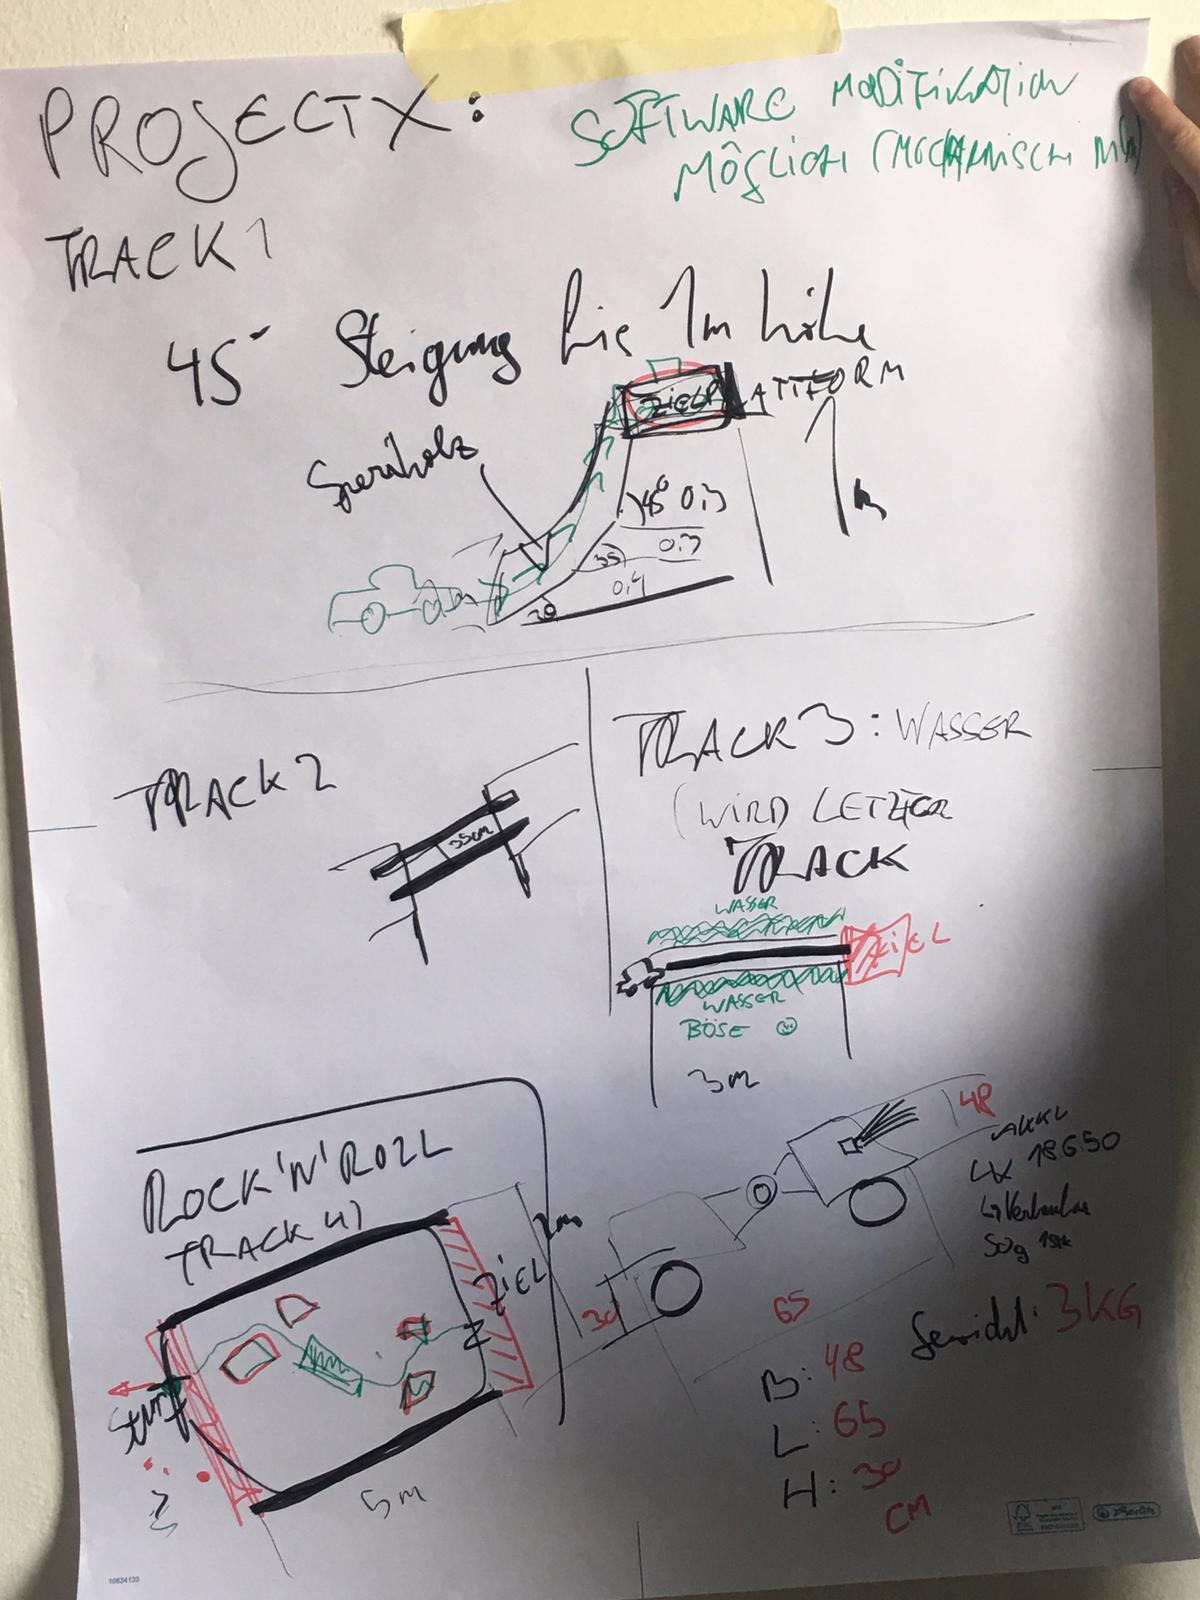 PROJECT X:
SOFTWARE MODIFIKATION
MÖGLICH (MECHANISCH
TRACK 1
45° Steigung bis 1m höhe
ZIELPLATTFORM
Sperrholz
45° 0.3
35 0.3
0.4
20
TRACK 2
35cm
TRACK 3: WASSER
(WIRD LETZTER
TRACK
WASSER
ZIEL
WASSER
BÖSE
3m
ROCK'N'ROLL
TRACK 4)
2m
ZIEL
Start
5m
48
AKKU
4x 18650
50g
30
65
Gewicht: 3KG
B: 48
L: 65
H: 30
CM
10634139